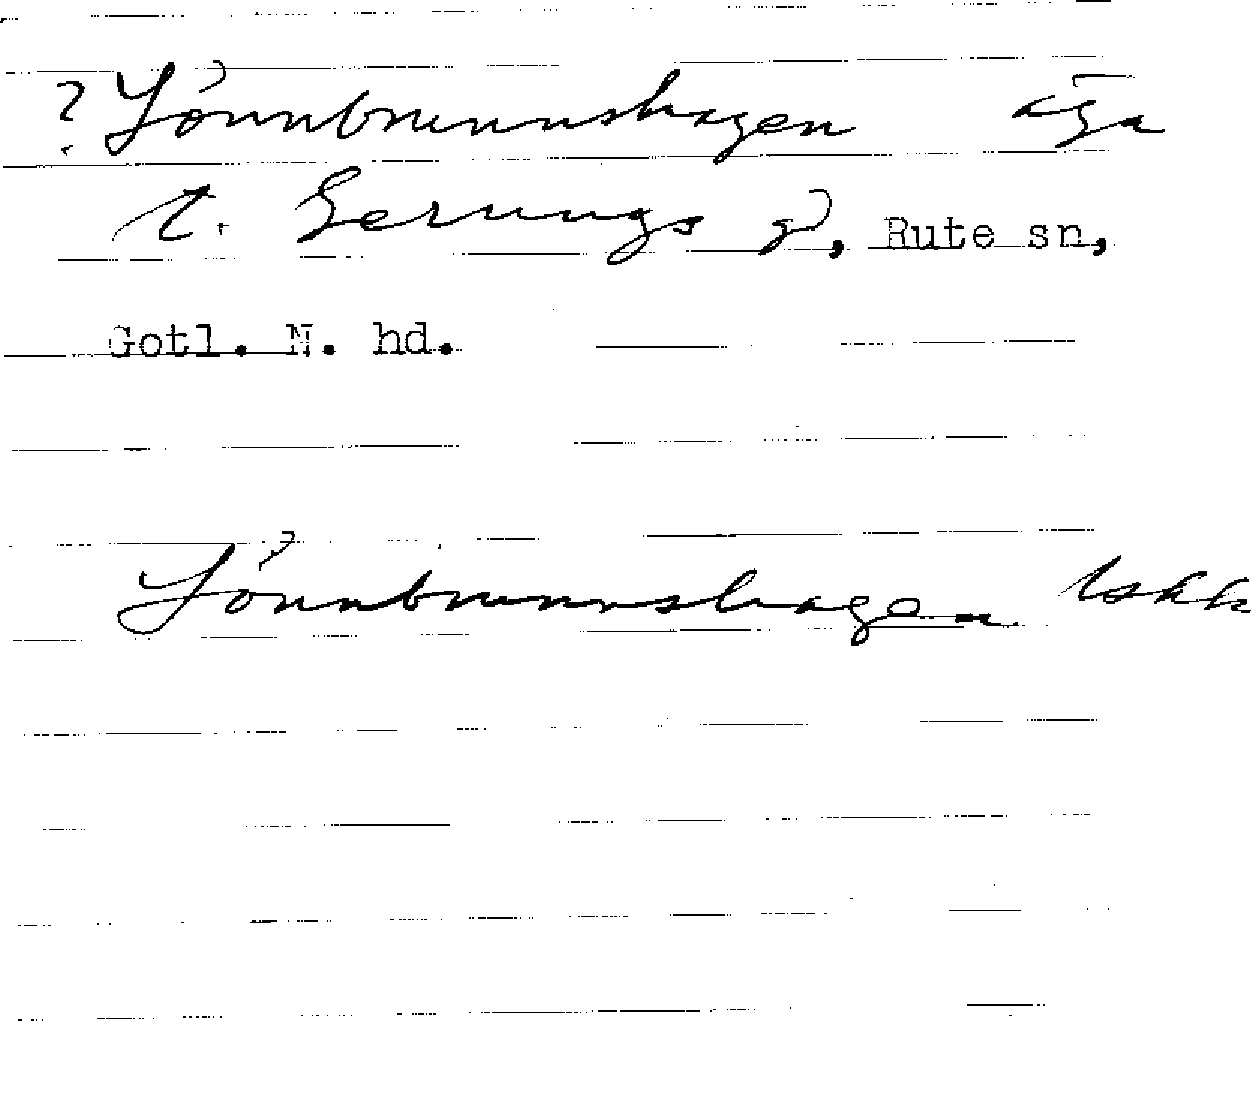 ? Lönnbrunnshagen äga
t. Gerungs gd, Rute sn,
Gotl. N. hd.
Lönnbrunnshagen lskk